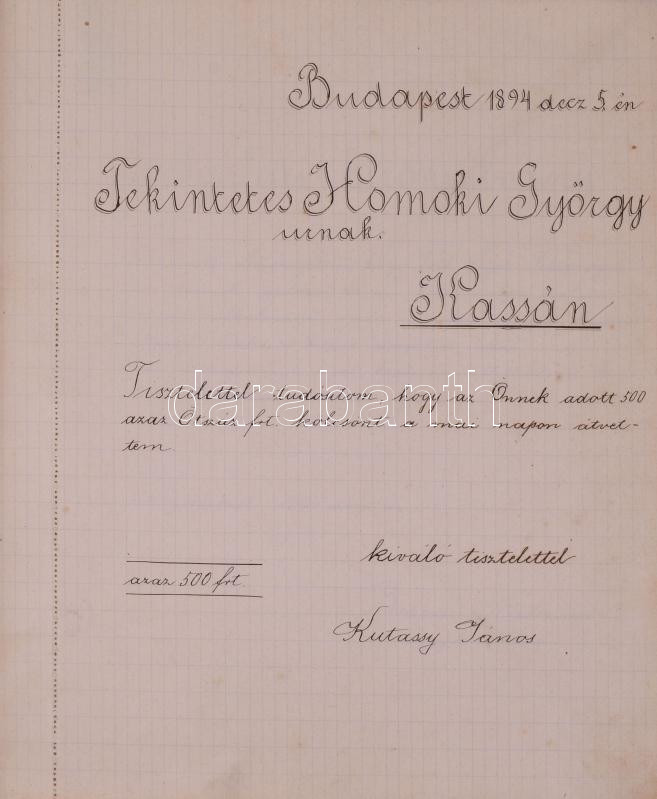 Budapest 1894 decz 5 én
Tekintetes Homoki György
urnak.
Kassán
Tisztelettel tudósitom, hogy az Önnek adott 500
azaz Ötszáz frt. kölcsönt a mai napon átvet-
tem.
kiváló tisztelettel
azaz 500 frt.
Kutassy János
darabanth